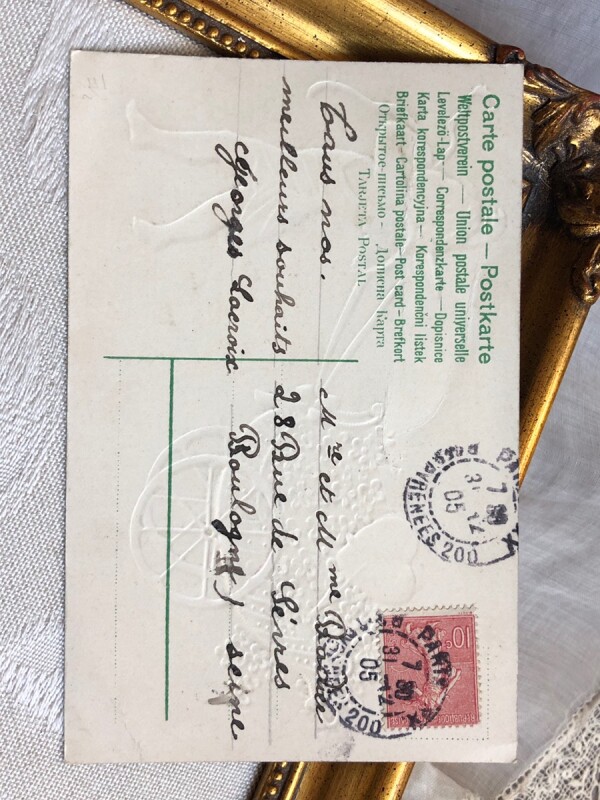 Carte postale — Postkarte
Weltpostverein — Union postale universelle
Levelező-Lap — Correspondenzkarte — Dopisnice
Karta korespondencyjna — Korespondenční listek
Briefkaart — Cartolina postale — Post card — Brefkort
Открытое письмо - Дописна Карта
TARJETA POSTAL
Tous nos.
meilleurs souhaits
Georges Lacroix
Mre et Mme
28 Rue de Sèvres
Boulogne / seine
PARIS XX
7 30
31 12
05
PYRENEES 200
10
PARIS XX
7 30
31 12
05
200